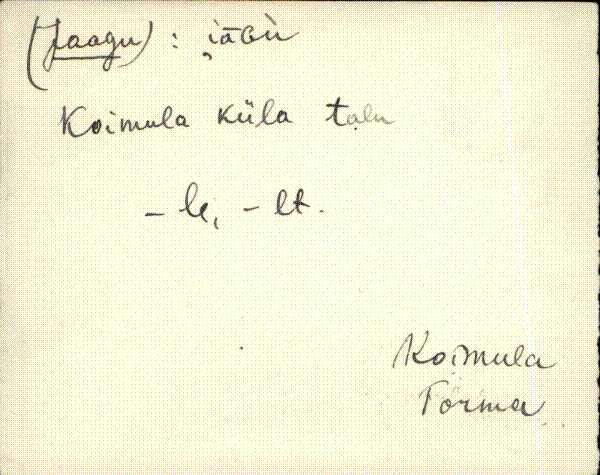 (Jaagu) : i̮āGù
Koimula küla talu
– le, – lt.
Koimula
Torma